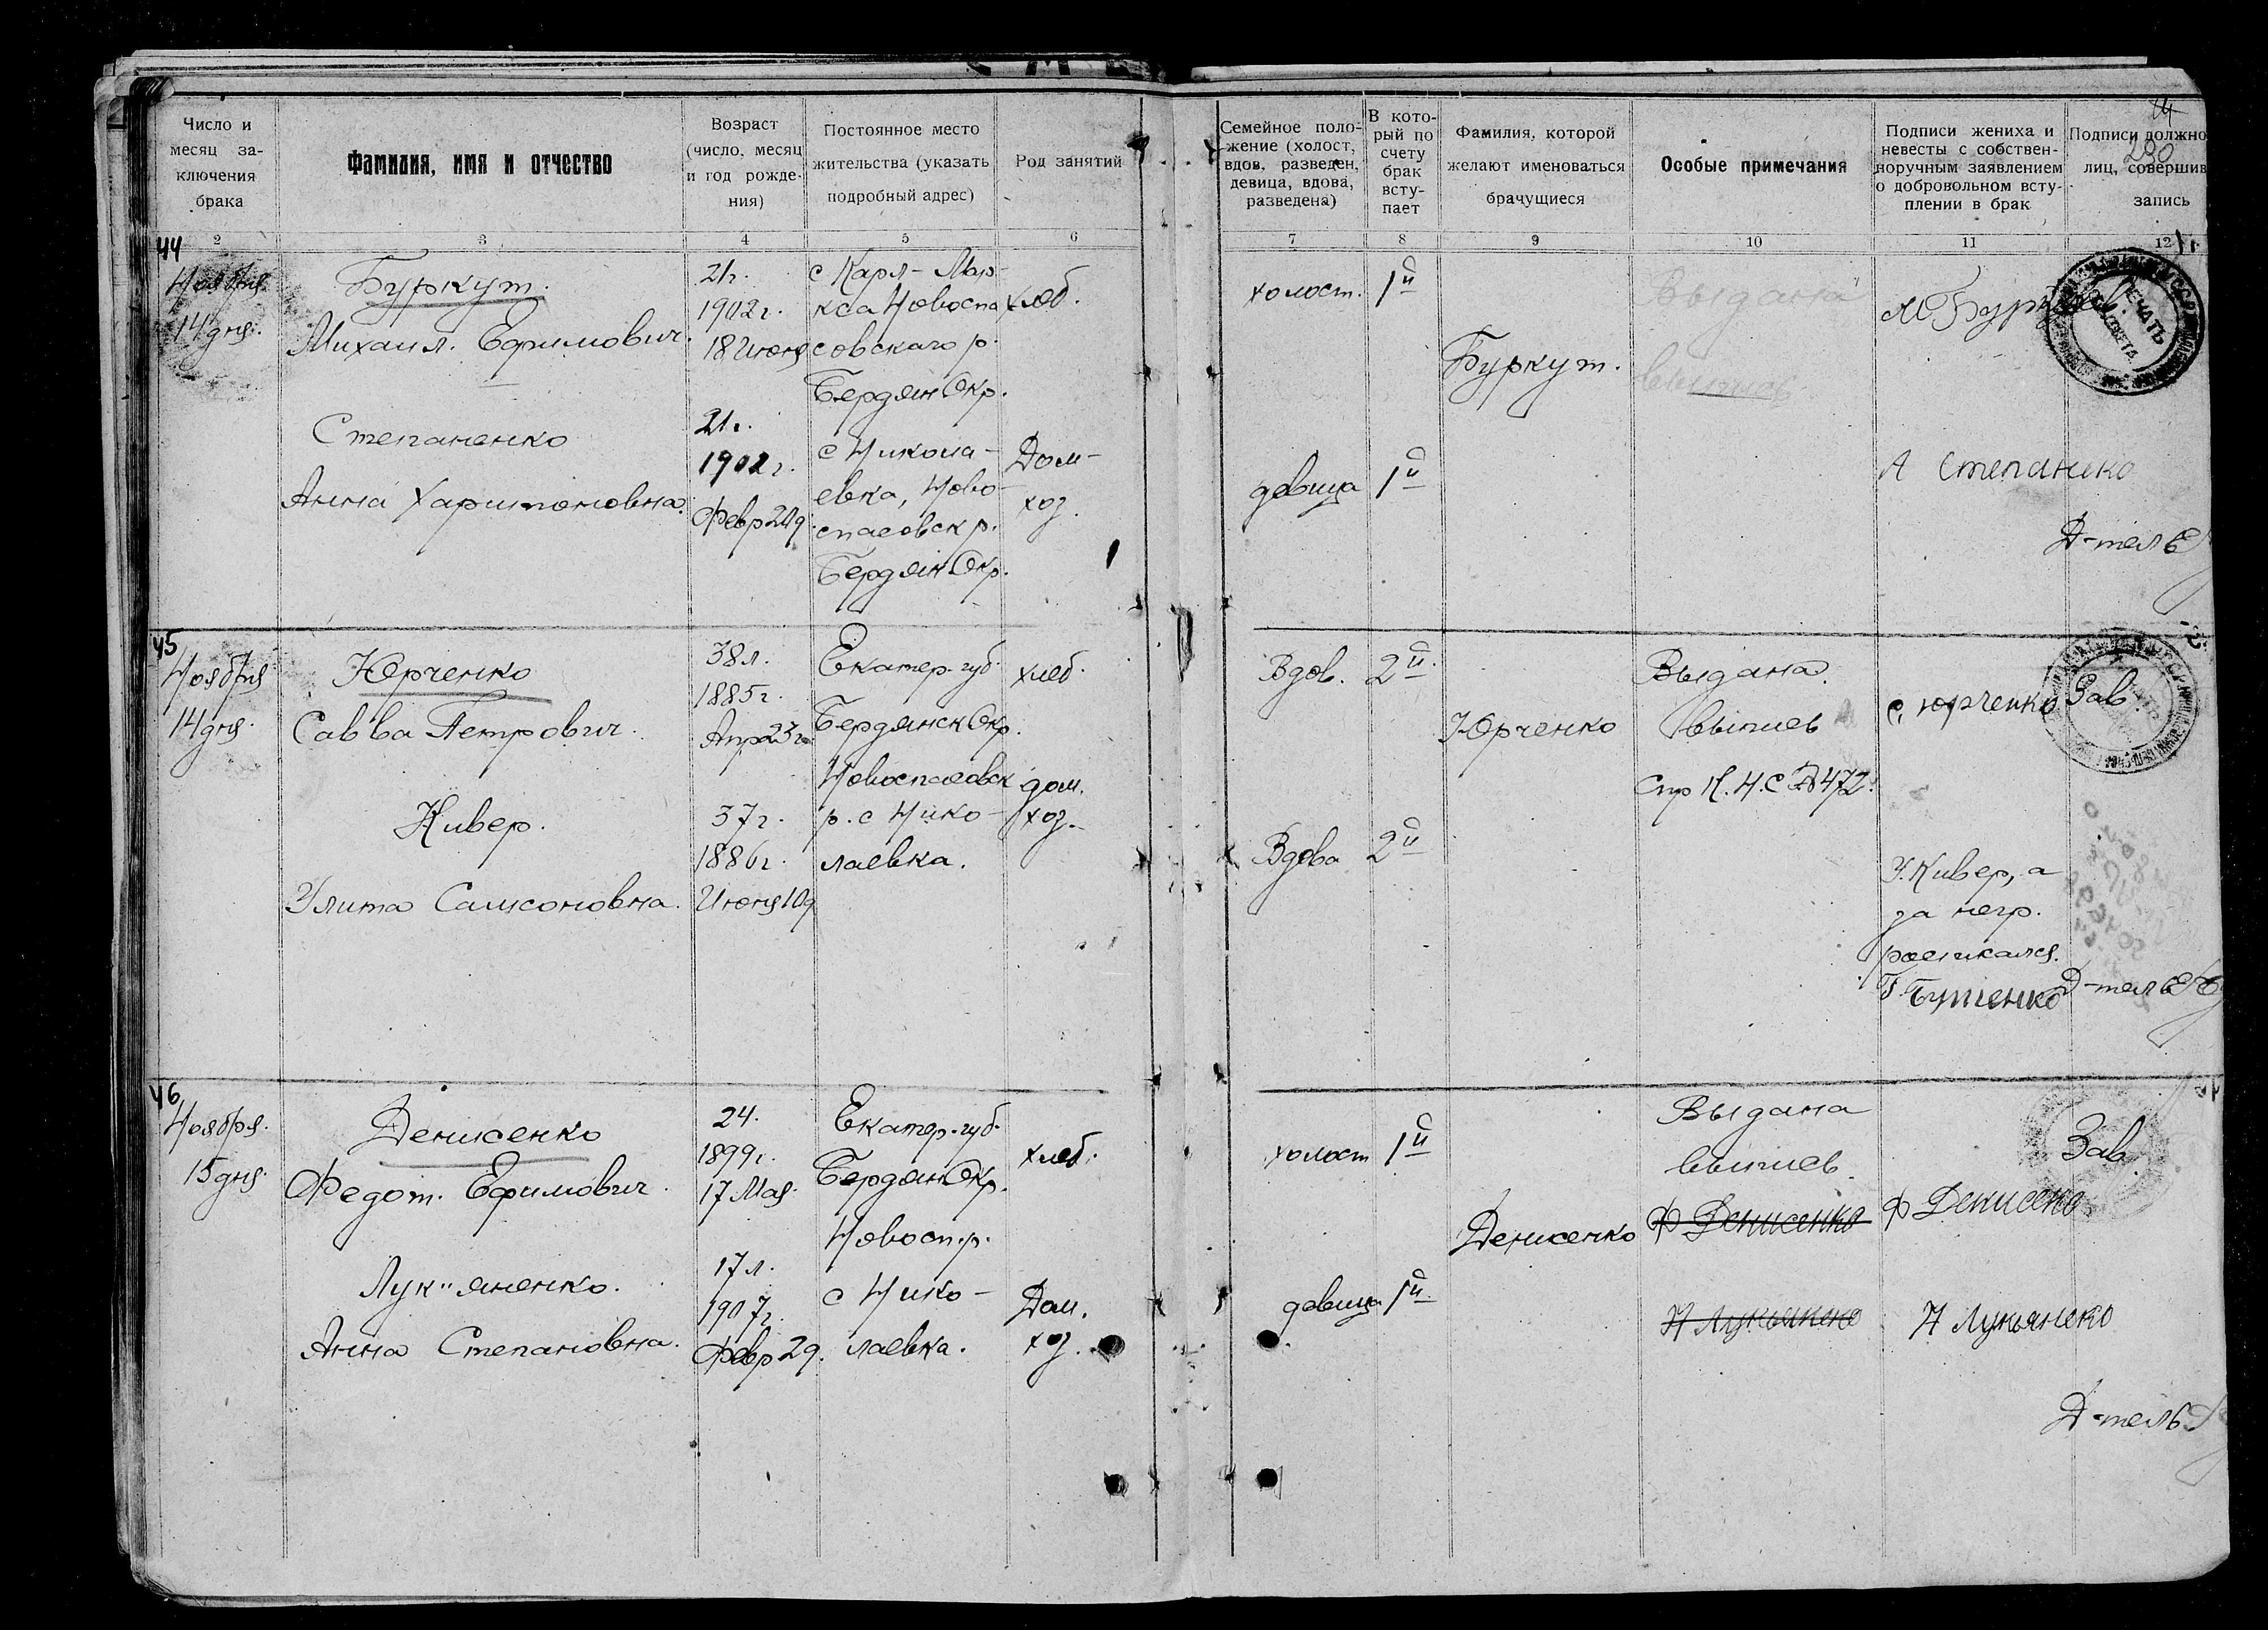 Число и
месяц за-
ключения
брака
Фамилия, имя и отчество
Возраст
(число, месяц
и год рожде-
ния)
Постоянное место
жительства (указать
подробный адрес)
Род занятий
Семейное поло-
жение (холост,
вдов, разведен,
девица, вдова,
разведена)
В кото-
рый по
счету
брак
всту-
пает
Фамилия, которой
желают именоваться
брачущиеся
Особые примечания
Подписи жениха и
невесты с собствен-
норучным заявлением
о добровольном всту-
плении в брак
Подписи должно
лиц, совершив
запись
290
2 3 4 5 6 7 8 9 10 11 12
44
Ноября
14 дня.
Буркут.
Михаил. Ефимович.
21г.
1902г.
18 Июня
с Карл-Мар-
кса Новоспа
совскаго р.
Бердян Окр.
хлеб.
холост.
1й
Буркут.
Выдана
выпись
ПЕЧАТЬ
Степаненко
Анна Харитоновна.
21г.
1902г.
Февр 24д.
с Никола-
евка, Ново-
спасовск р.
Бердян Окр.
Дом-
хоз.
девица
1й
А Степанико
Д-тель
45
Ноября
14 дня.
Юрченко
Савва Петрович.
38л.
1885г
Апр 23г
Екатер. губ.
Бердянск Окр.
Новоспасовск
р. с Нико-
лаевка.
хлеб.
Вдов.
2й.
Юрченко
Выдана.
выпись
Спр К.Н.С № 472.
С. Юрченко
Зав.
Кивер.
Улита Самсоновна.
37г.
1886г.
Июня 10д
дом.
хоз.
Вдова
2й
У. Кивер, а
за негр.
росписался.
Г. Бутенко
Д-тель
46
Ноября.
15 дня.
Денисенко
Федот. Ефимович.
24.
1899г.
17 Мая.
Екатер. губ.
Бердян Окр.
Новосп. р.
с Нико-
лаевка.
хлеб.
холост
1й
Денисенко
Выдана
выпись.
Ф Денисенко
Ф Денисенко
Зав
Лук"яненко.
Анна Степановна.
17л.
1907г.
Февр 2д.
Дом.
хоз.
девица
1й.
Н Лукьянено
Н Лукьянеко
Д-тель